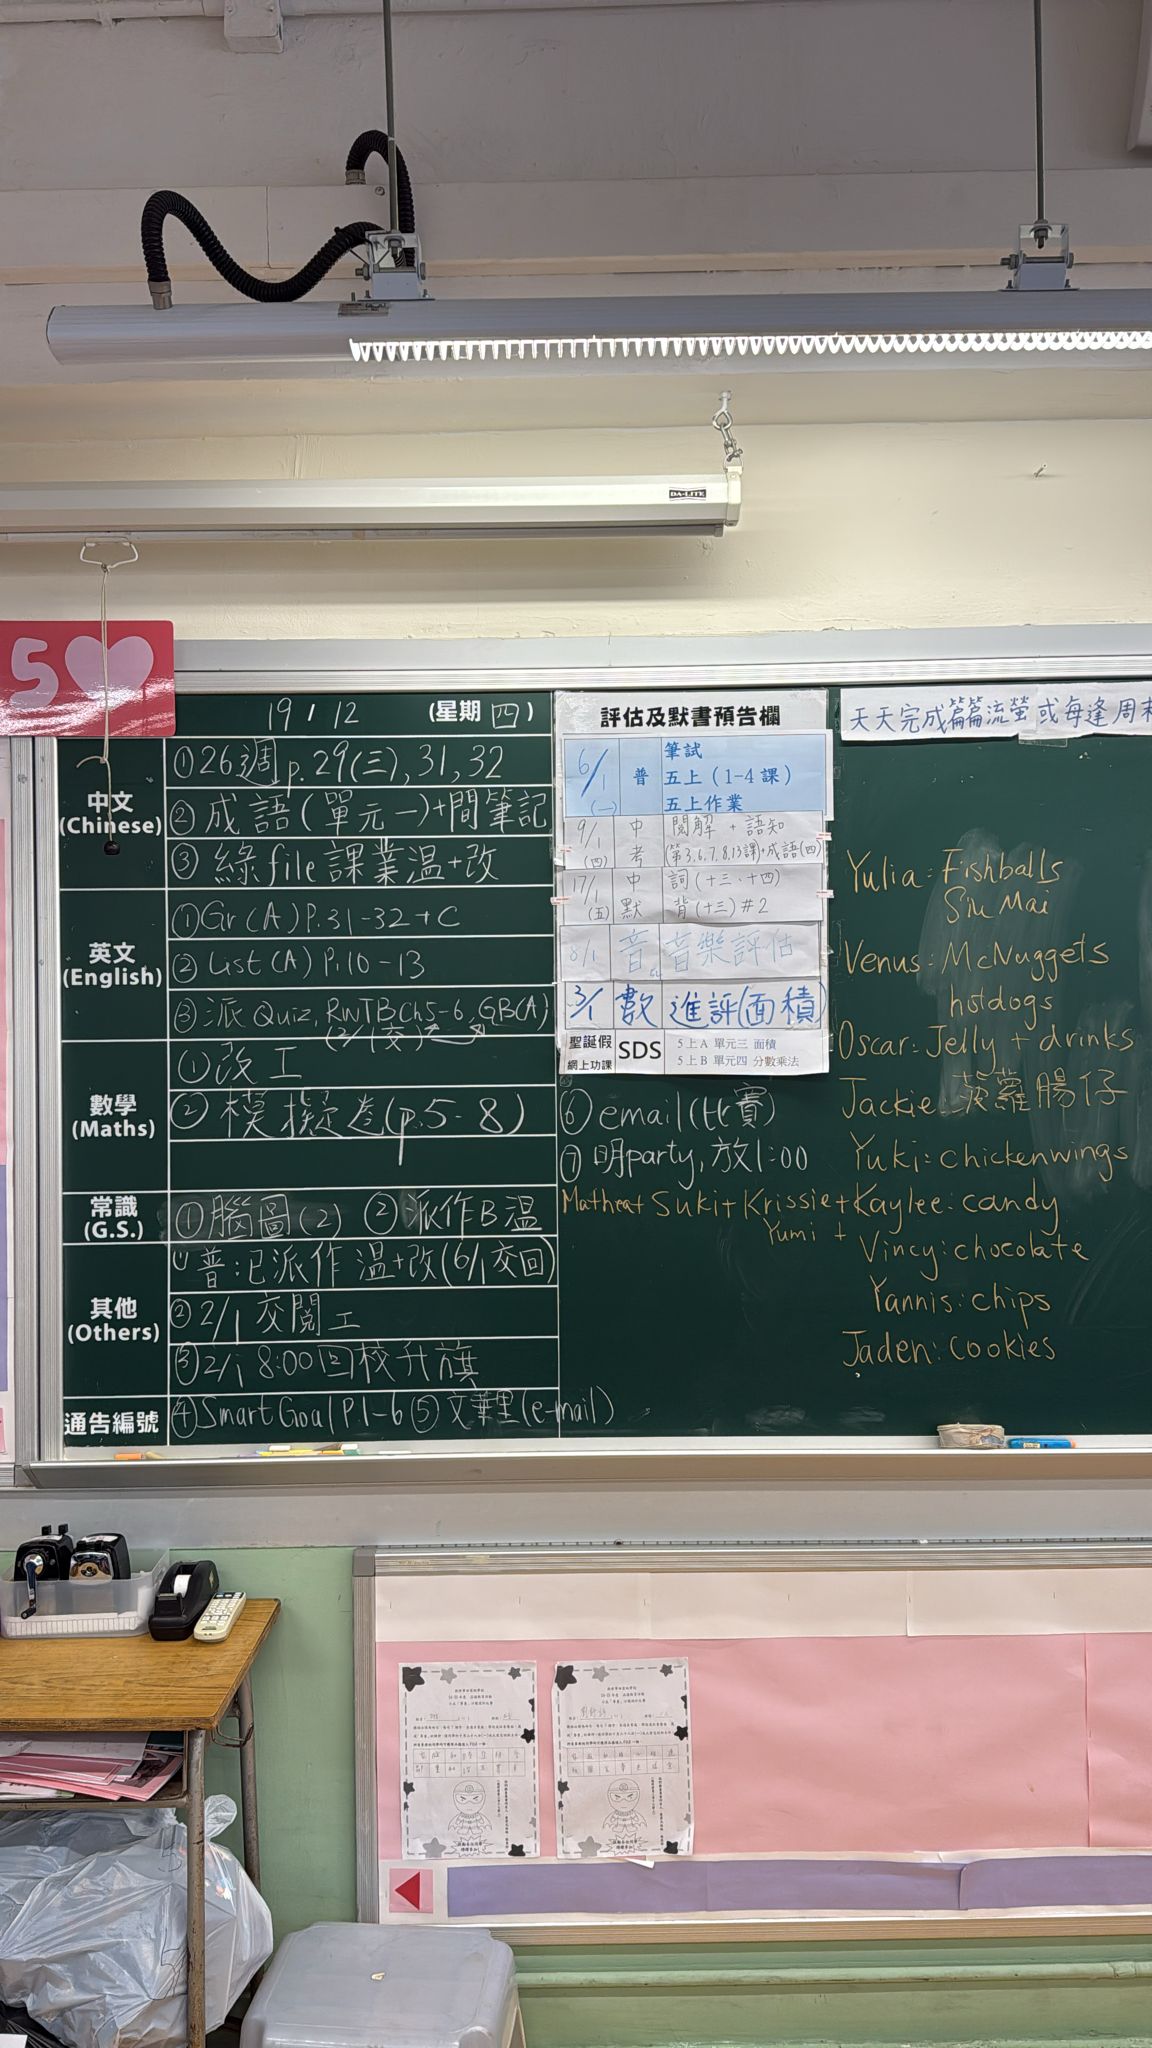 DA-LITE
5
19 / 12 (星期 四)
中文
(Chinese)
①26週 p.29(三), 31, 32
②成語(單元一)+間筆記
③綠file課業溫+改
英文
(English)
①Gr(A) P.31-32 + C
②List(A) P.10-13
③派Quiz, RWTBCh5-6, GB(A)
(2/1交)
數學
(Maths)
①改工
②模擬卷(p.5-8)
常識
(G.S.)
①腦圖(2) ②派作B溫
其他
(Others)
普已派作溫+改(6/1交回)
②2/1 交閱工
③2/1 8:00回校升旗
通告編號
④Smart Goal P.1-6 ⑤文華里(e-mail)
評估及默書預告欄
6/1 (一) 普 筆試
五上 (1-4課)
五上作業
9/1 (四) 中考 閱解 + 語知
(第3,6,7,8,13課)+成語(四)
17/1 (五) 中默 詞(十三、十四)
背(十三)#2
8/1 音 音樂評估
3/1 數 進評(面積)
聖誕假
網上功課
SDS
5上A 單元三 面積
5上B 單元四 分數乘法
⑥email(比賽)
⑦明party, 放1:00
天天完成篇篇流螢或每逢周末
Yulia: Fishballs
Siu Mai
Venus: McNuggets
hotdogs
Oscar: Jelly + drinks
Jackie: 菠蘿腸仔
Yuki: chickenwings
Suki+Krissie+Kaylee: candy
Yumi +
Vincy: chocolate
Yannis: chips
Jaden: cookies